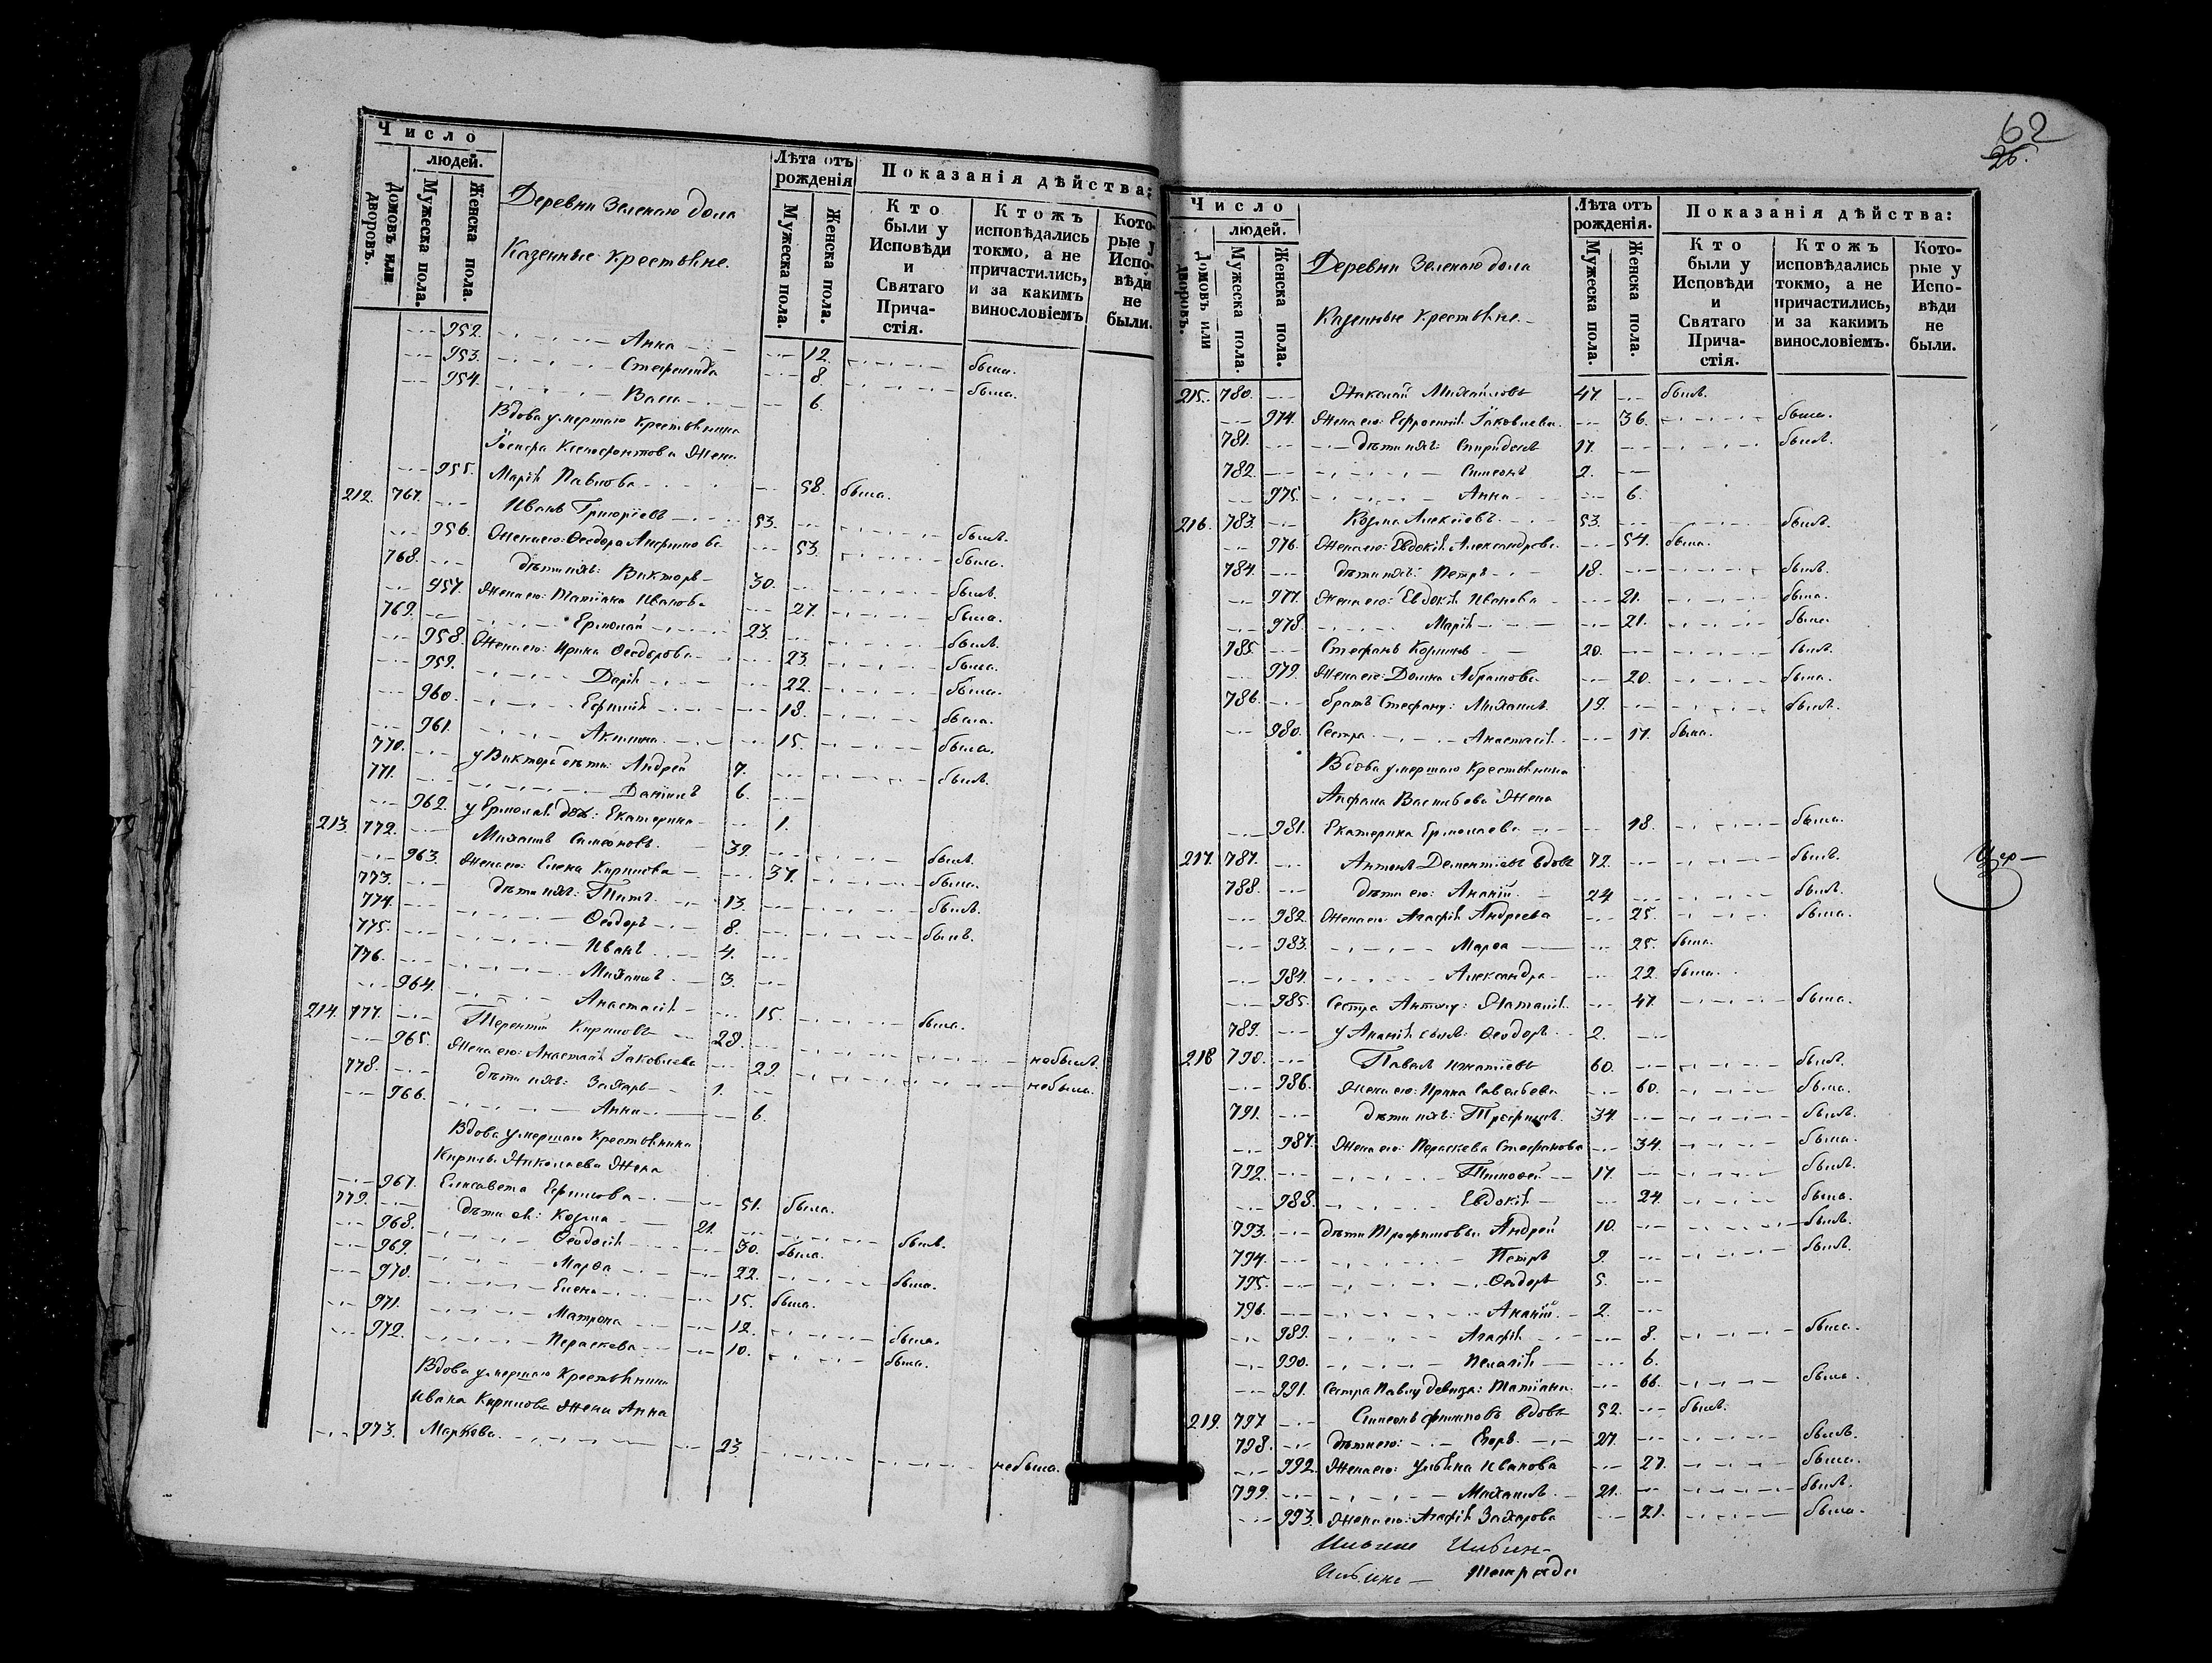 Число
людей.
Домовъ или дворовъ.
Мужеска пола.
Женска пола.
Деревни Зеленаго дола
Казенные Крестьяне.
Лѣта отъ рожденія
Мужеска пола.
Женска пола.
Показанія дѣйства:
Кто были у Исповѣди и Святаго Причастія.
Ктожъ исповѣдались токмо, а не причастились, и за какимъ винословіемъ
Которые у Исповѣди не были.
952. Анна 12. была.
953. Стефанида 8. была.
954. 6.
Вдова умершаго Крестьянина
Іосифа Ксенофонтова Жена
955. Марія Павлова 58. была.
212. 767. Иванъ Григоріевъ 53. былъ.
956. Жена его: Ѳеодора 53. была.
768. дѣти ихъ: Викторъ 30. былъ.
957. Жена его: Татіана Иванова 27. была.
769. Ермолай 23. былъ.
958. Жена его: Ирина Ѳеодорова 23. была.
959. Дарія 22. была.
960. Ефимія 18. была.
961. Акилина 15. была.
770. у Виктора дѣти: Андрей 7. былъ.
771. Даніилъ 6.
962. у Ермолая дочь: Екатерина 1.
213. 772. Михаилъ Симеоновъ 39. былъ.
963. Жена его: Елена Кирилова 37. была.
773. дѣти ихъ: Титъ 13. былъ.
774. Ѳеодоръ 8. былъ.
775. Иванъ 4.
776. Михаилъ 3.
964. Анастасія 15. была.
214. 777. Терентій Кириловъ 28. небылъ.
965. Жена его: Анастасія Іаковлева 29. небыла.
778. дѣти ихъ: Захаръ 1.
966. Анна 6.
Вдова умершаго Крестьянина
Кирилы Николаева Жена
967. Елисавета Ефимова 51. была.
779. дѣти ея: Козма 21. былъ.
968. Ѳеодосія 30. была.
969. Марѳа 22. была.
970. Елена 15. была.
971. Матрона 12. была.
972. Параскева 10. была.
Вдова умершаго Крестьянина
Ивана Кирилова Жена Анна
973. Маркова 23. небыла.
62
26.
Число
людей.
Домовъ или дворовъ.
Мужеска пола.
Женска пола.
Деревни Зеленаго дола
Казенные Крестьяне.
Лѣта отъ рожденія.
Мужеска пола.
Женска пола.
Показанія дѣйства:
Кто были у Исповѣди и Святаго Причастія.
Ктожъ исповѣдались токмо, а не причастились, и за какимъ винословіемъ.
Которые у Исповѣди не были.
215. 780. Николай Михайловъ 47. былъ.
974. Жена его: Ефросинія Іаковлева 36. была.
781. дѣти ихъ: Спиридонъ 17. былъ.
782. Симеонъ 2.
975. Анна 6.
216. 783. Козма Алексіевъ 53. былъ.
976. Жена его: Евдокія Александрова 54. была.
784. дѣти ихъ: Петръ 18. былъ.
977. Жена его: Евдокія Иванова 21. была.
978. Марія 21. была.
785. Стефанъ Козминъ 20. былъ.
979. Жена его: Домна Абрамова 20. была.
786. братъ Стефану: Михаилъ 19. былъ.
980. Сестра Анастасія 17. была.
Вдова умершаго Крестьянина
Жена
981. Екатерина Ермолаева 18. была.
217. 787. Антонъ Дементіевъ вдовъ 72. былъ.
788. дѣти его: Ананій 24 былъ.
982. Жена его Агафія Андреева 25. была.
983. Марѳа 25. была.
984. Александра 22. была.
985. Сестра Антону: Наталія 47. была.
789. у Ананія сынъ: Ѳеодоръ 2.
218 790. Павелъ Игнатіевъ 60. былъ.
986. Жена его: Ирина Савельева 60. была.
791. дѣти ихъ: Трофимъ 34. былъ.
987. Жена его: Параскева Стефанова 34. была.
792. Тимофей 17. былъ.
988. Евдокія 24. была.
793. дѣти Трофимовы Андрей 10. былъ.
794. Петръ 9. былъ.
795. Ѳеодоръ 5.
796. Ананій 2.
989. Агафія 8. была.
990. Пелагія 6.
991. Сестра Павлу девица: Татіана 66. была.
219. 797 Симеонъ Филиповъ вдовъ 52. былъ.
798. дѣти его: Егоръ 27. былъ.
992. Жена его: Ульяна Иванова 27. была.
799. Михаилъ 21. былъ.
993. Жена его: Агафія Захарова 21. была.